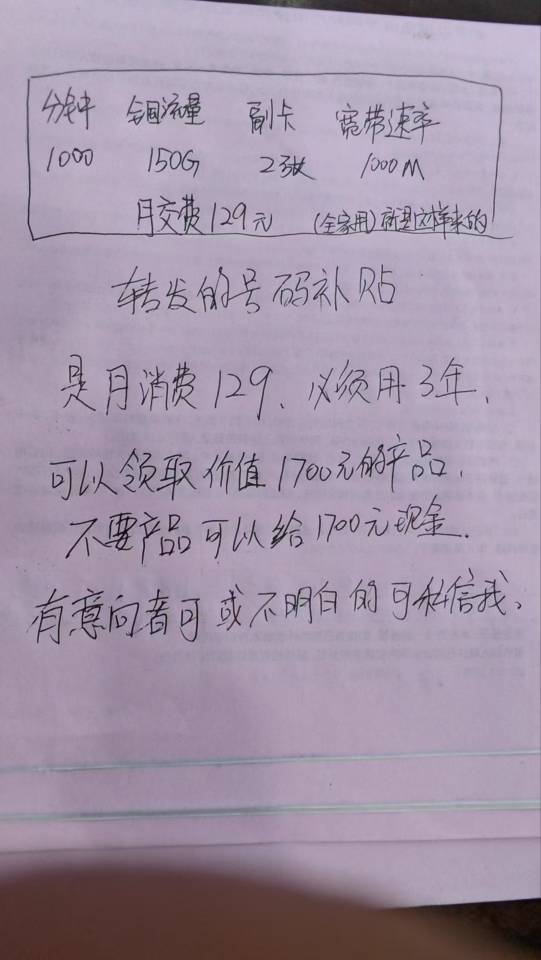 分钟 全国流量 副卡 宽带速率
1000 150G 2张 1000M
月交费129元 (全家用)就是这样来的
转发的号码补贴
是月消费129、必须用3年、
可以领取价值1700元的产品.
不要产品可以给1700元现金.
有意向者可或不明白的可私信我、